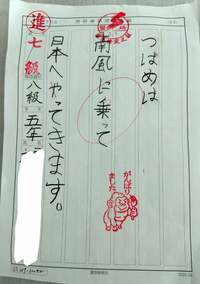 つばめは
南風に乗って
日本へやってきます。
進
七級
八級
五年
がんばり
ました